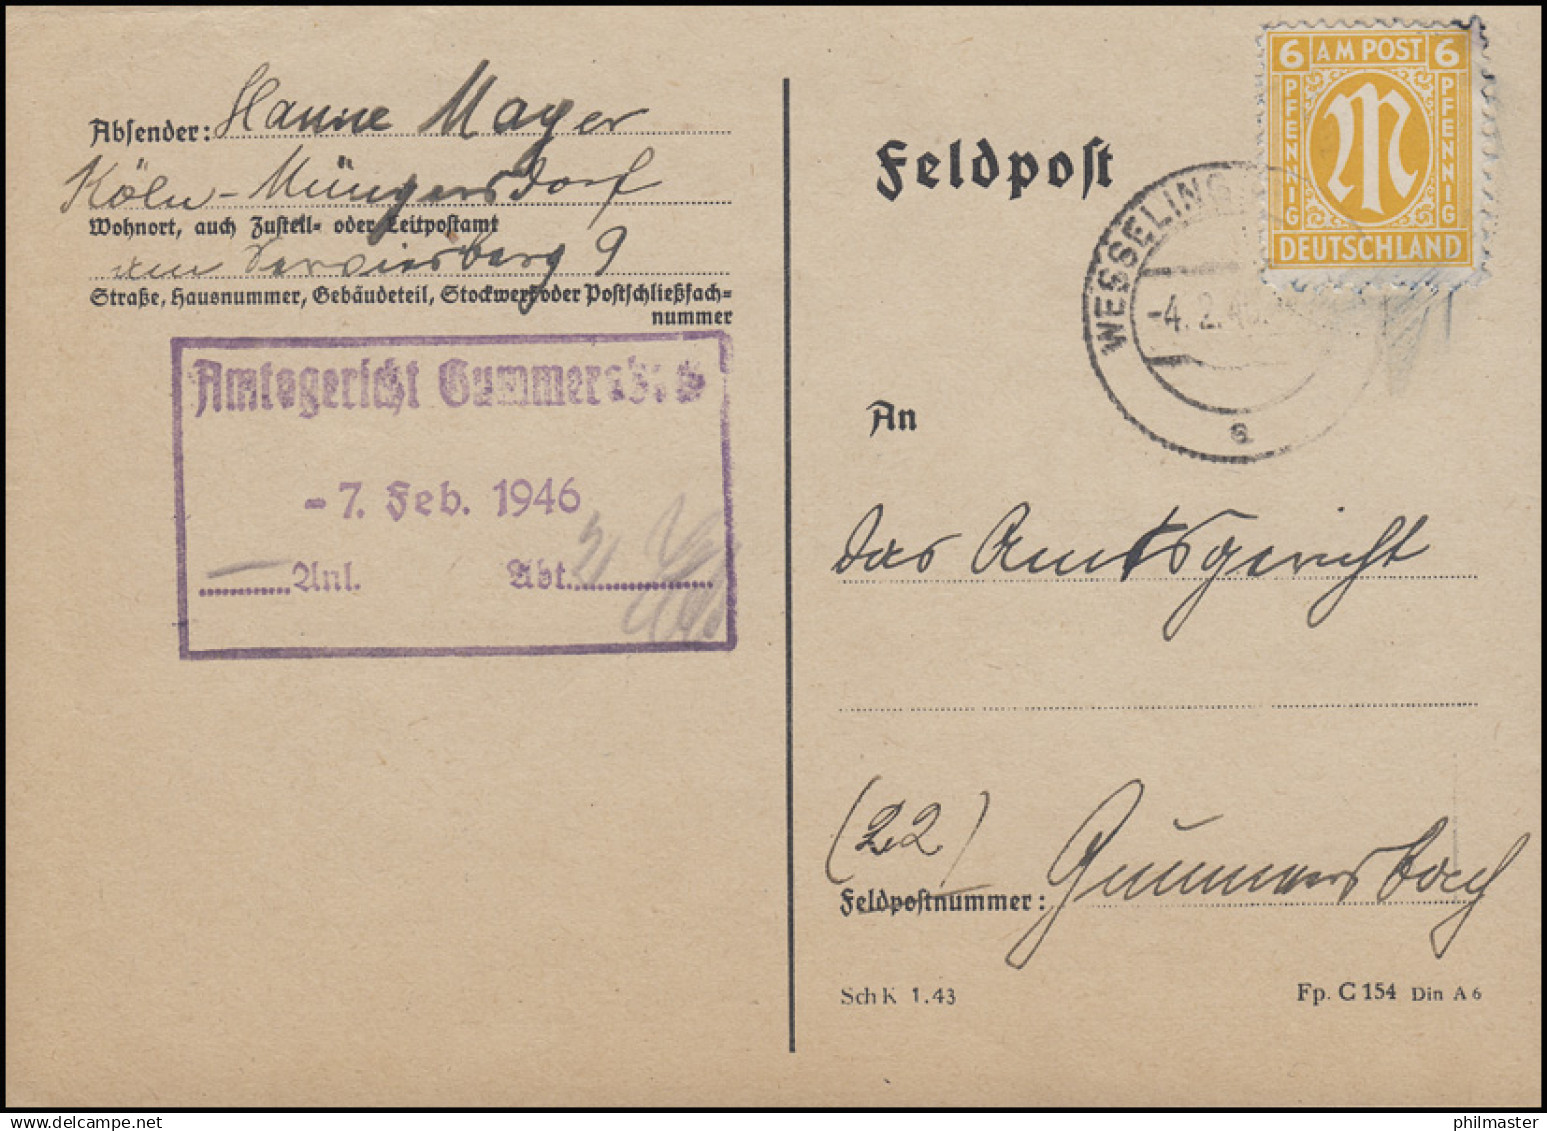 Absender: Hanne Mayer
Köln-Müngersdorf
Wohnort, auch Zustell- oder Leitpostamt
9
Straße, Hausnummer, Gebäudeteil, Stockwerk oder Postschließfach-
nummer
Amtsgericht Gummersbach
-7. Feb. 1946
Anl. Abt. 2
Feldpost
6 AM POST 6
PFENNIG PFENNIG
M
DEUTSCHLAND
WESSELING
-4.2.46.
a
An
das Amtsgericht
(22) Gummersbach
Feldpostnummer:
Sch K 1.43
Fp. C 154 Din A 6
philmaster